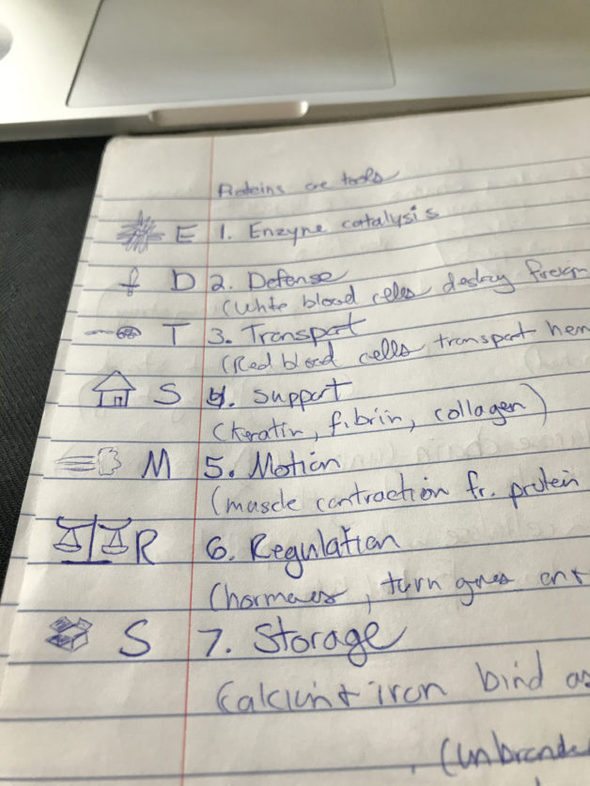 Proteins are tools
E 1. Enzyne catalysis
D 2. Defense
(White blood cells destroy foreign
T 3. Transport
(Red blood cells transport hem
S 4. Support
(Keratin, fibrin, collagen)
M 5. Motion
(muscle contraction fr. protein
R 6. Regulation
(hormones, turn genes on+
S 7. Storage
Calcium + iron bind as